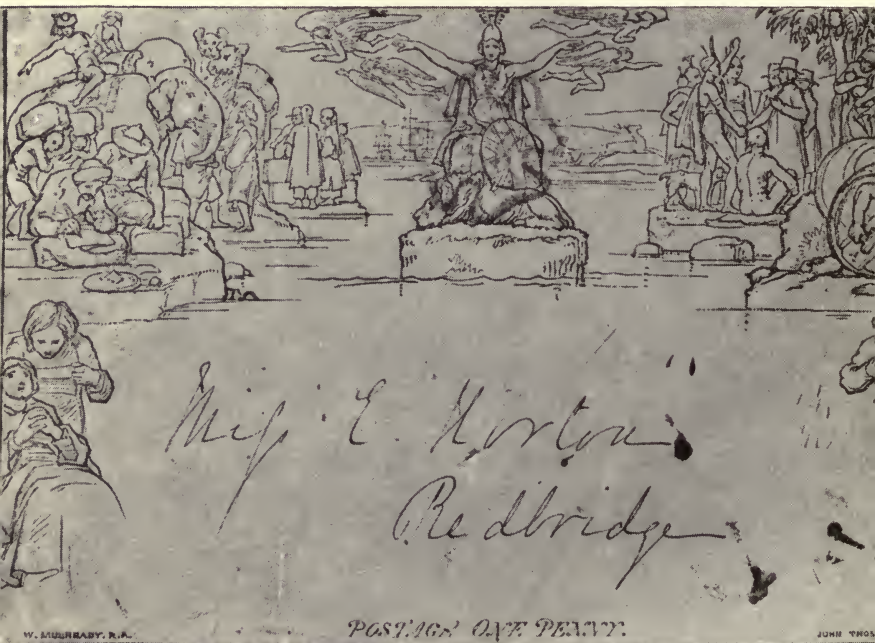 Miſs E.
Redbridge
W. MULREADY. R.A.
POSTAGE ONE PENNY.
JOHN THO